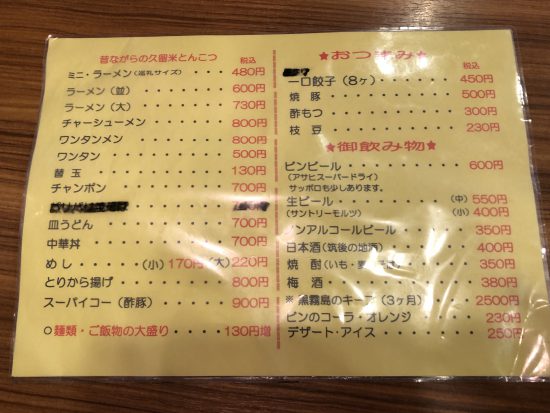 昔ながらの久留米とんこつ 税込
ミニ・ラーメン(巡礼サイズ)・・・480円
ラーメン(並)・・・・・・・・600円
ラーメン(大)・・・・・・・・730円
チャーシューメン・・・・・・・800円
ワンタンメン・・・・・・・・・800円
ワンタン・・・・・・・・・・・500円
替玉・・・・・・・・・・・・・130円
チャンポン・・・・・・・・・・700円
皿うどん・・・・・・・・・・・700円
中華丼・・・・・・・・・・・・700円
めし・・・・・(小)170円(大)220円
とりから揚げ・・・・・・・・・800円
スーパイコー(酢豚)・・・・・・900円
○麺類・ご飯物の大盛り・・・・・130円増
★おつまみ★
税込
一口餃子(8ヶ)・・・・・・450円
焼豚・・・・・・・・・・・500円
酢もつ・・・・・・・・・・300円
枝豆・・・・・・・・・・・230円
★御飲み物★
ビンビール・・・・・・・・600円
(アサヒスーパードライ)
サッポロも少しあります。
生ビール・・・・・・・(中)550円
(サントリーモルツ) (小)400円
ノンアルコールビール・・・350円
日本酒(筑後の地酒)・・・・400円
焼酎(いも・ ・・・350円
梅酒・・・・・・・・・・・380円
※黒霧島のキープ(3ヶ月)・・・2500円
ビンのコーラ・オレンジ・・・230円
デザート・アイス・・・・・250円